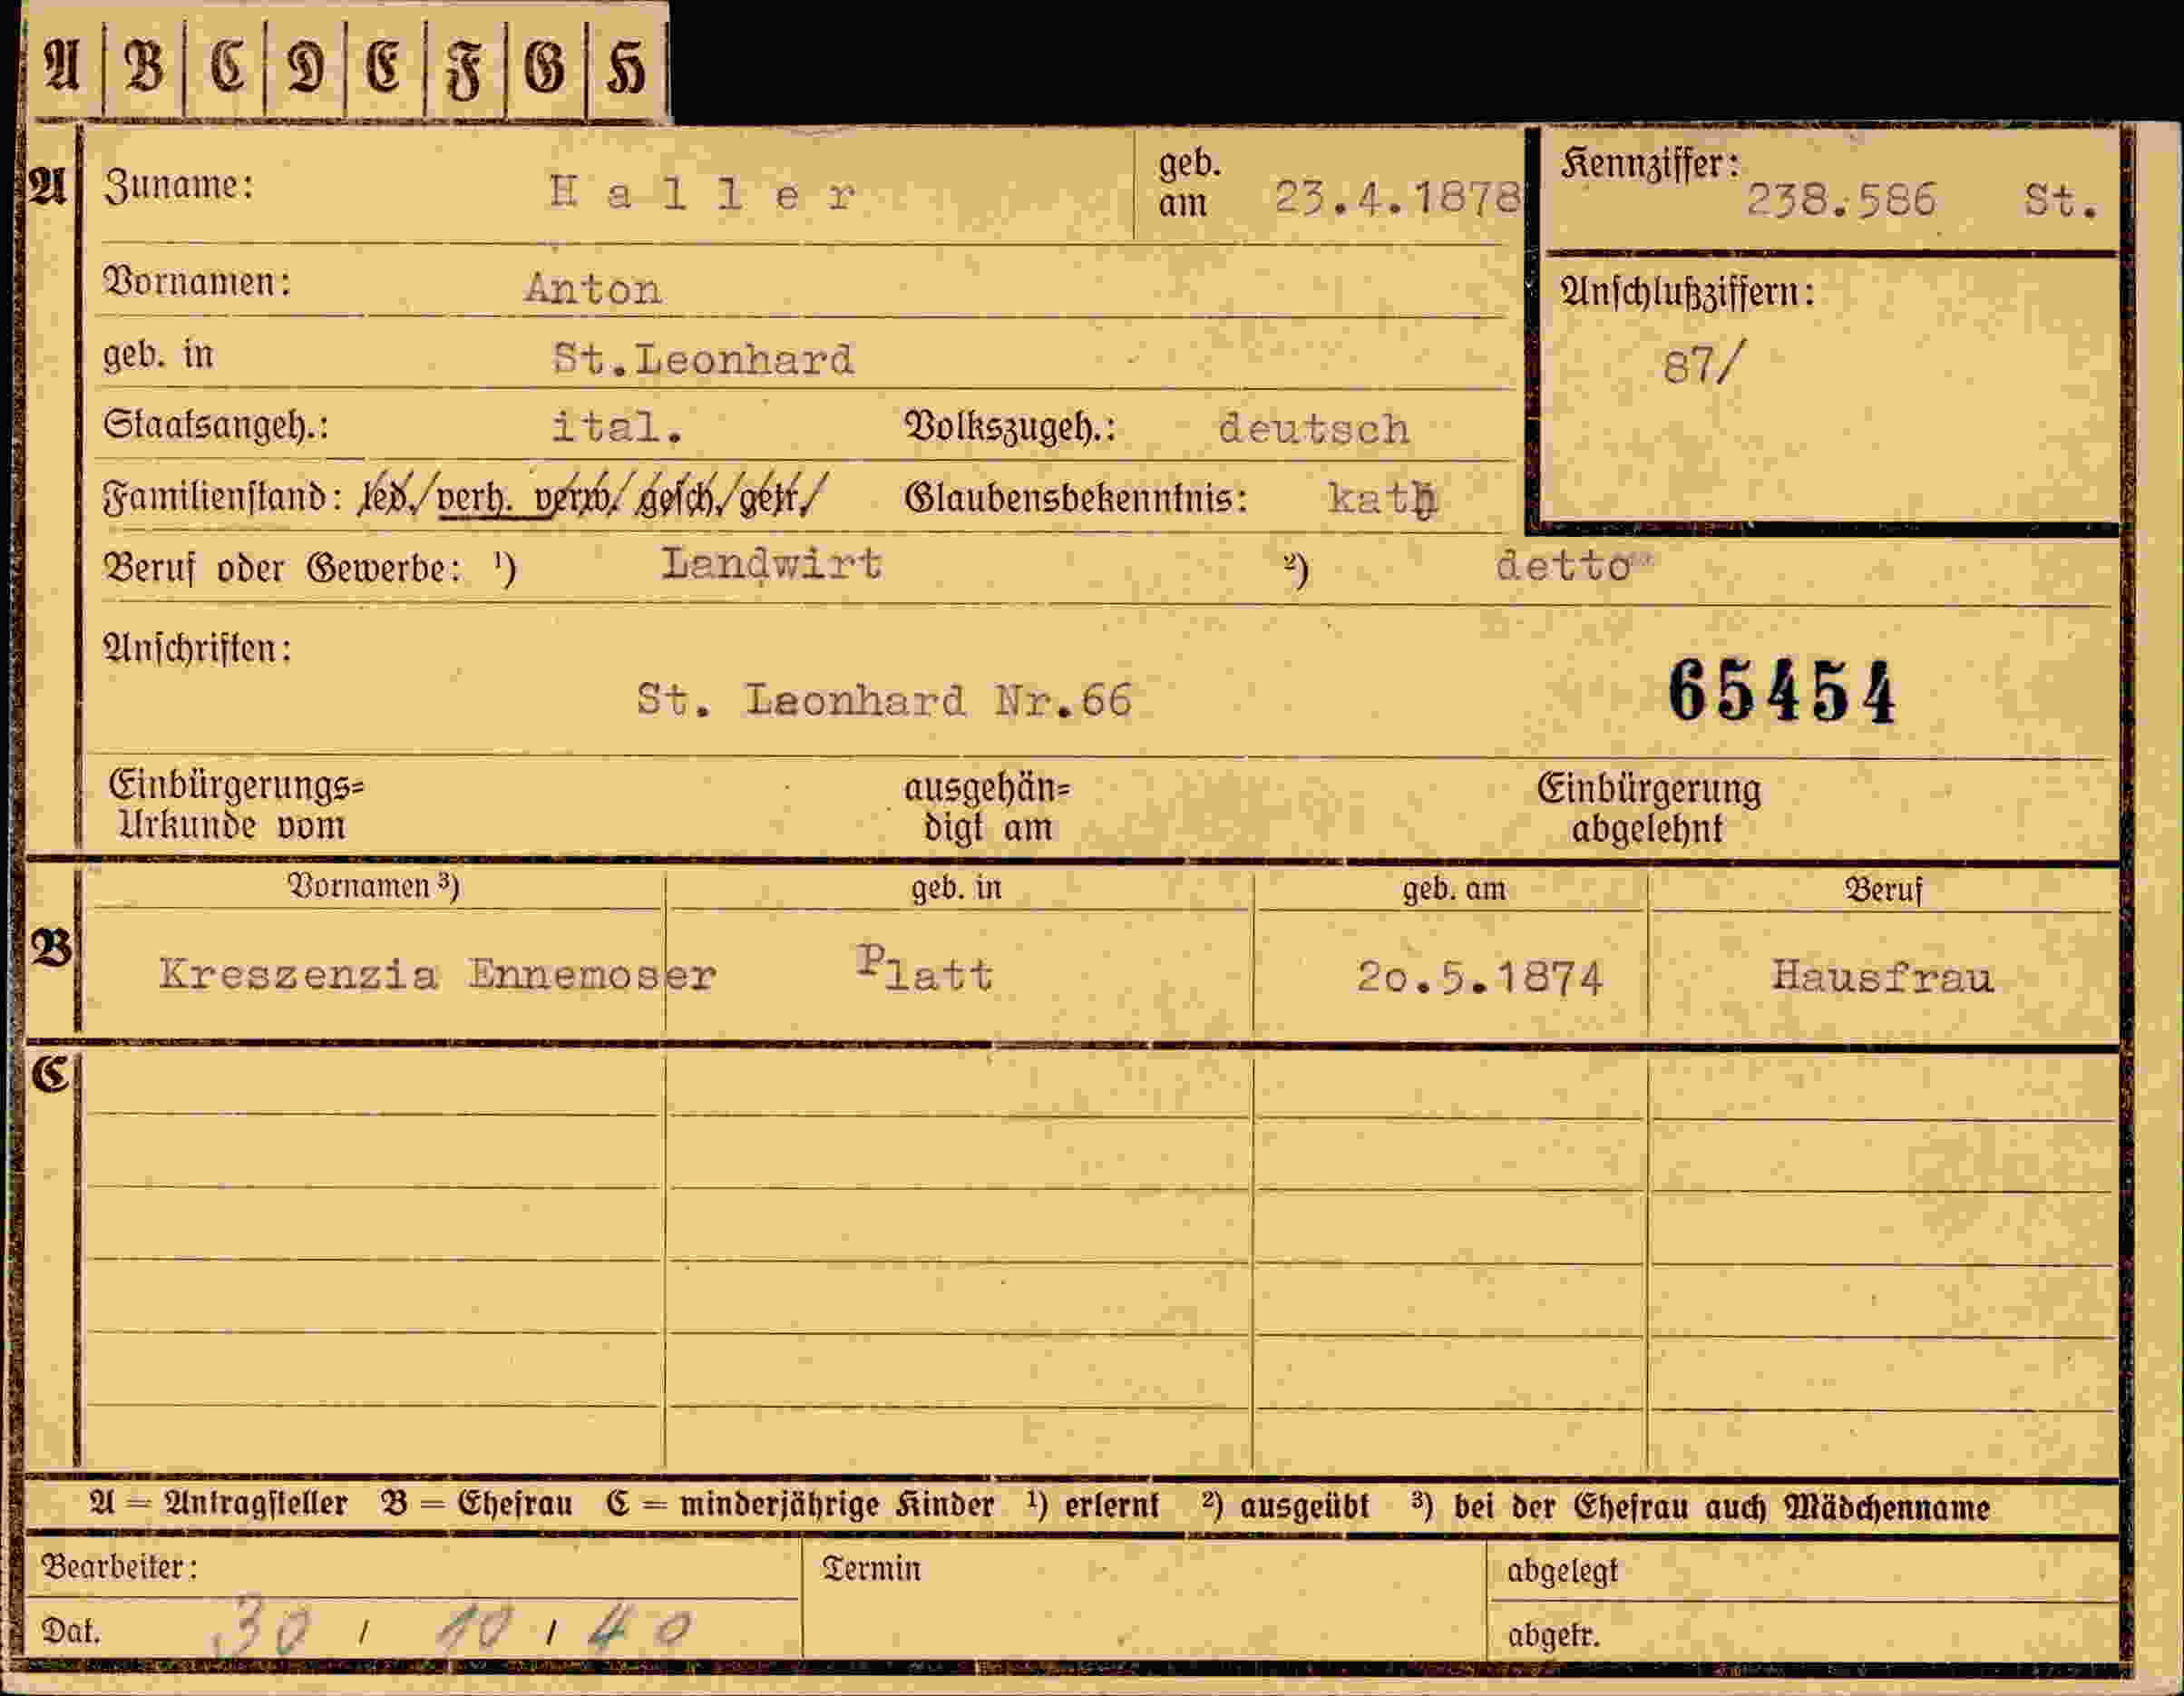 A B C D E F G H
A Zuname: Haller geb. am 23.4.1878 Kennziffer: 238.586 St.
Vornamen: Anton Anschlußziffern:
geb. in St.Leonhard 87/
Staatsangeh.: ital. Volkszugeh.: deutsch
Familienstand: led./verh. verw/gesch./getr/ Glaubensbekenntnis: kath
Beruf oder Gewerbe: ¹) Landwirt ²) detto
Anschriften:
St. Leonhard Nr.66 65454
Einbürgerungs= ausgehän= Einbürgerung
Urkunde vom digt am abgelehnt
Vornamen ³) geb. in geb. am Beruf
B Kreszenzia Ennemoser Platt 20.5.1874 Hausfrau
C
A = Antragsteller B = Ehefrau C = minderjährige Kinder ¹) erlernt ²) ausgeübt ³) bei der Ehefrau auch Mädchenname
Bearbeiter: Termin abgelegt
Dat. 30 / 10 / 40 abgetr.